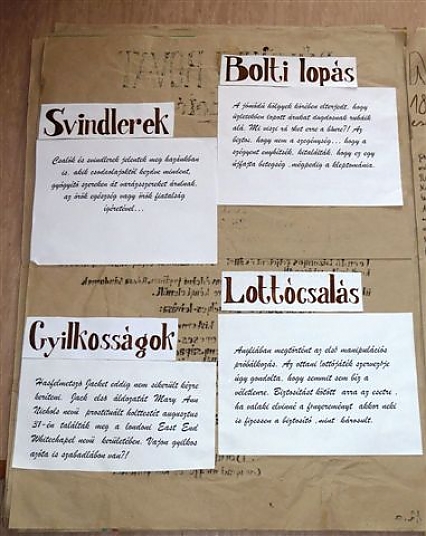 Svindlerek
Csalók és svindlerek jelentek meg hazánkban
is, akik csodalajoktól kezdve mindent,
gyógyító szereken át varázsszereket árulnak,
az örök egészség vagy örök fiatalság
ígéretével...
Bolti lopás
A jómódú hölgyek körében elterjedt, hogy
üzletekben lopott árukat dugdosnak ruháik
alá. Mi viszi rá őket erre a bűnre?! Az
biztos, hogy nem a szegénység... hogy a
szégyent enyhítsék, kitalálták, hogy ez egy
újfajta betegség, mégpedig a kleptománia.
Gyilkosságok
Hasfelmetsző Jacket eddig nem sikerült kézre
keríteni. Jack első áldozatát Mary Ann
Nichols nevű prostituált holttestét augusztus
31-én találták meg a londoni East End
Whitechapel nevű kerületében. Vajon gyilkos
azóta is szabadlábon van?!
Lottócsalás
Angliában megtörtént az első manipulációs
próbálkozás. Az ottani lottójáték szervezője
úgy gondolta, hogy semmit sem bíz a
véletlenre. Biztosítást kötött arra az esetre,
ha valaki elvinné a főnyereményt akkor neki
is fizessen a biztosító, mint károsult.